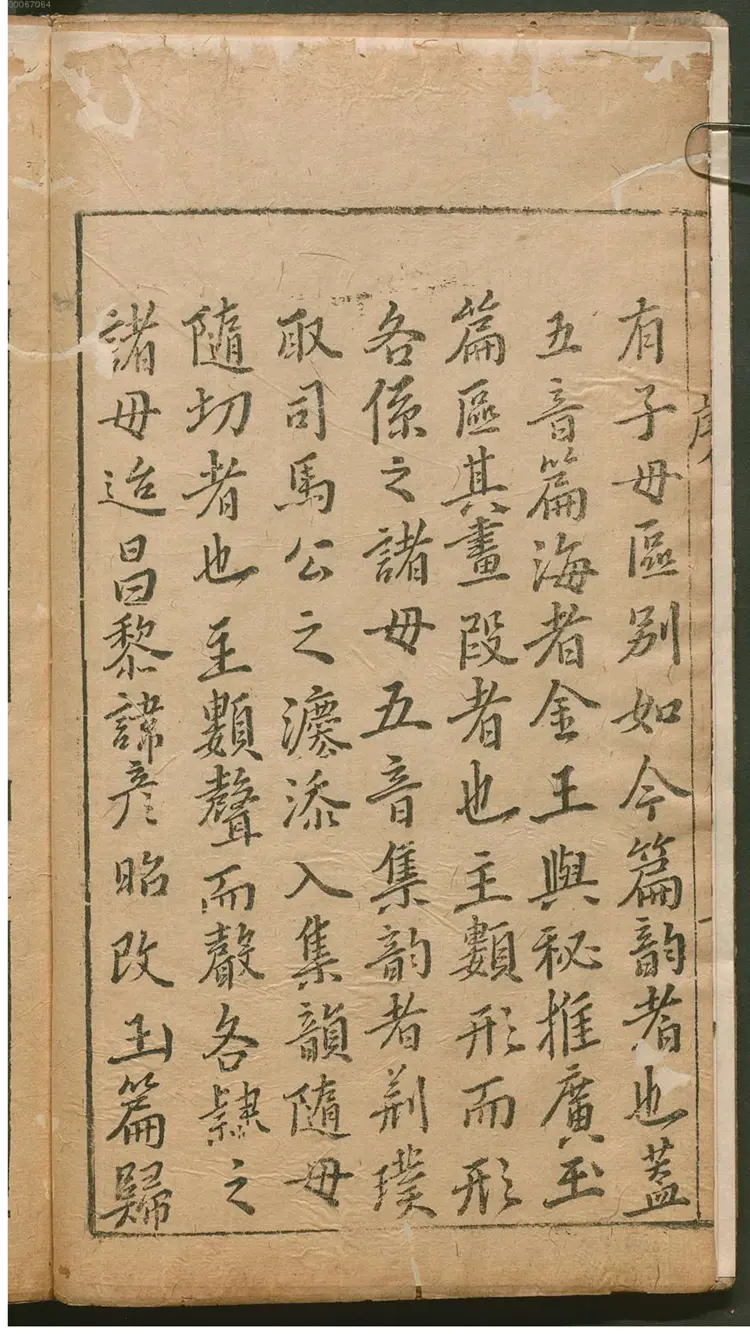 00067064
序
有子毋區别如今篇韵者也蓋
五音篇海者金王與秘推廣玉
篇區其畫段者也主類形而形
各係之諸毋五音集韵者荆璞
取司馬公之瀍添入集韻隨毋
隨切者也主類聲而聲各隷之
諸毋迨昌黎諱彦昭改玉篇歸